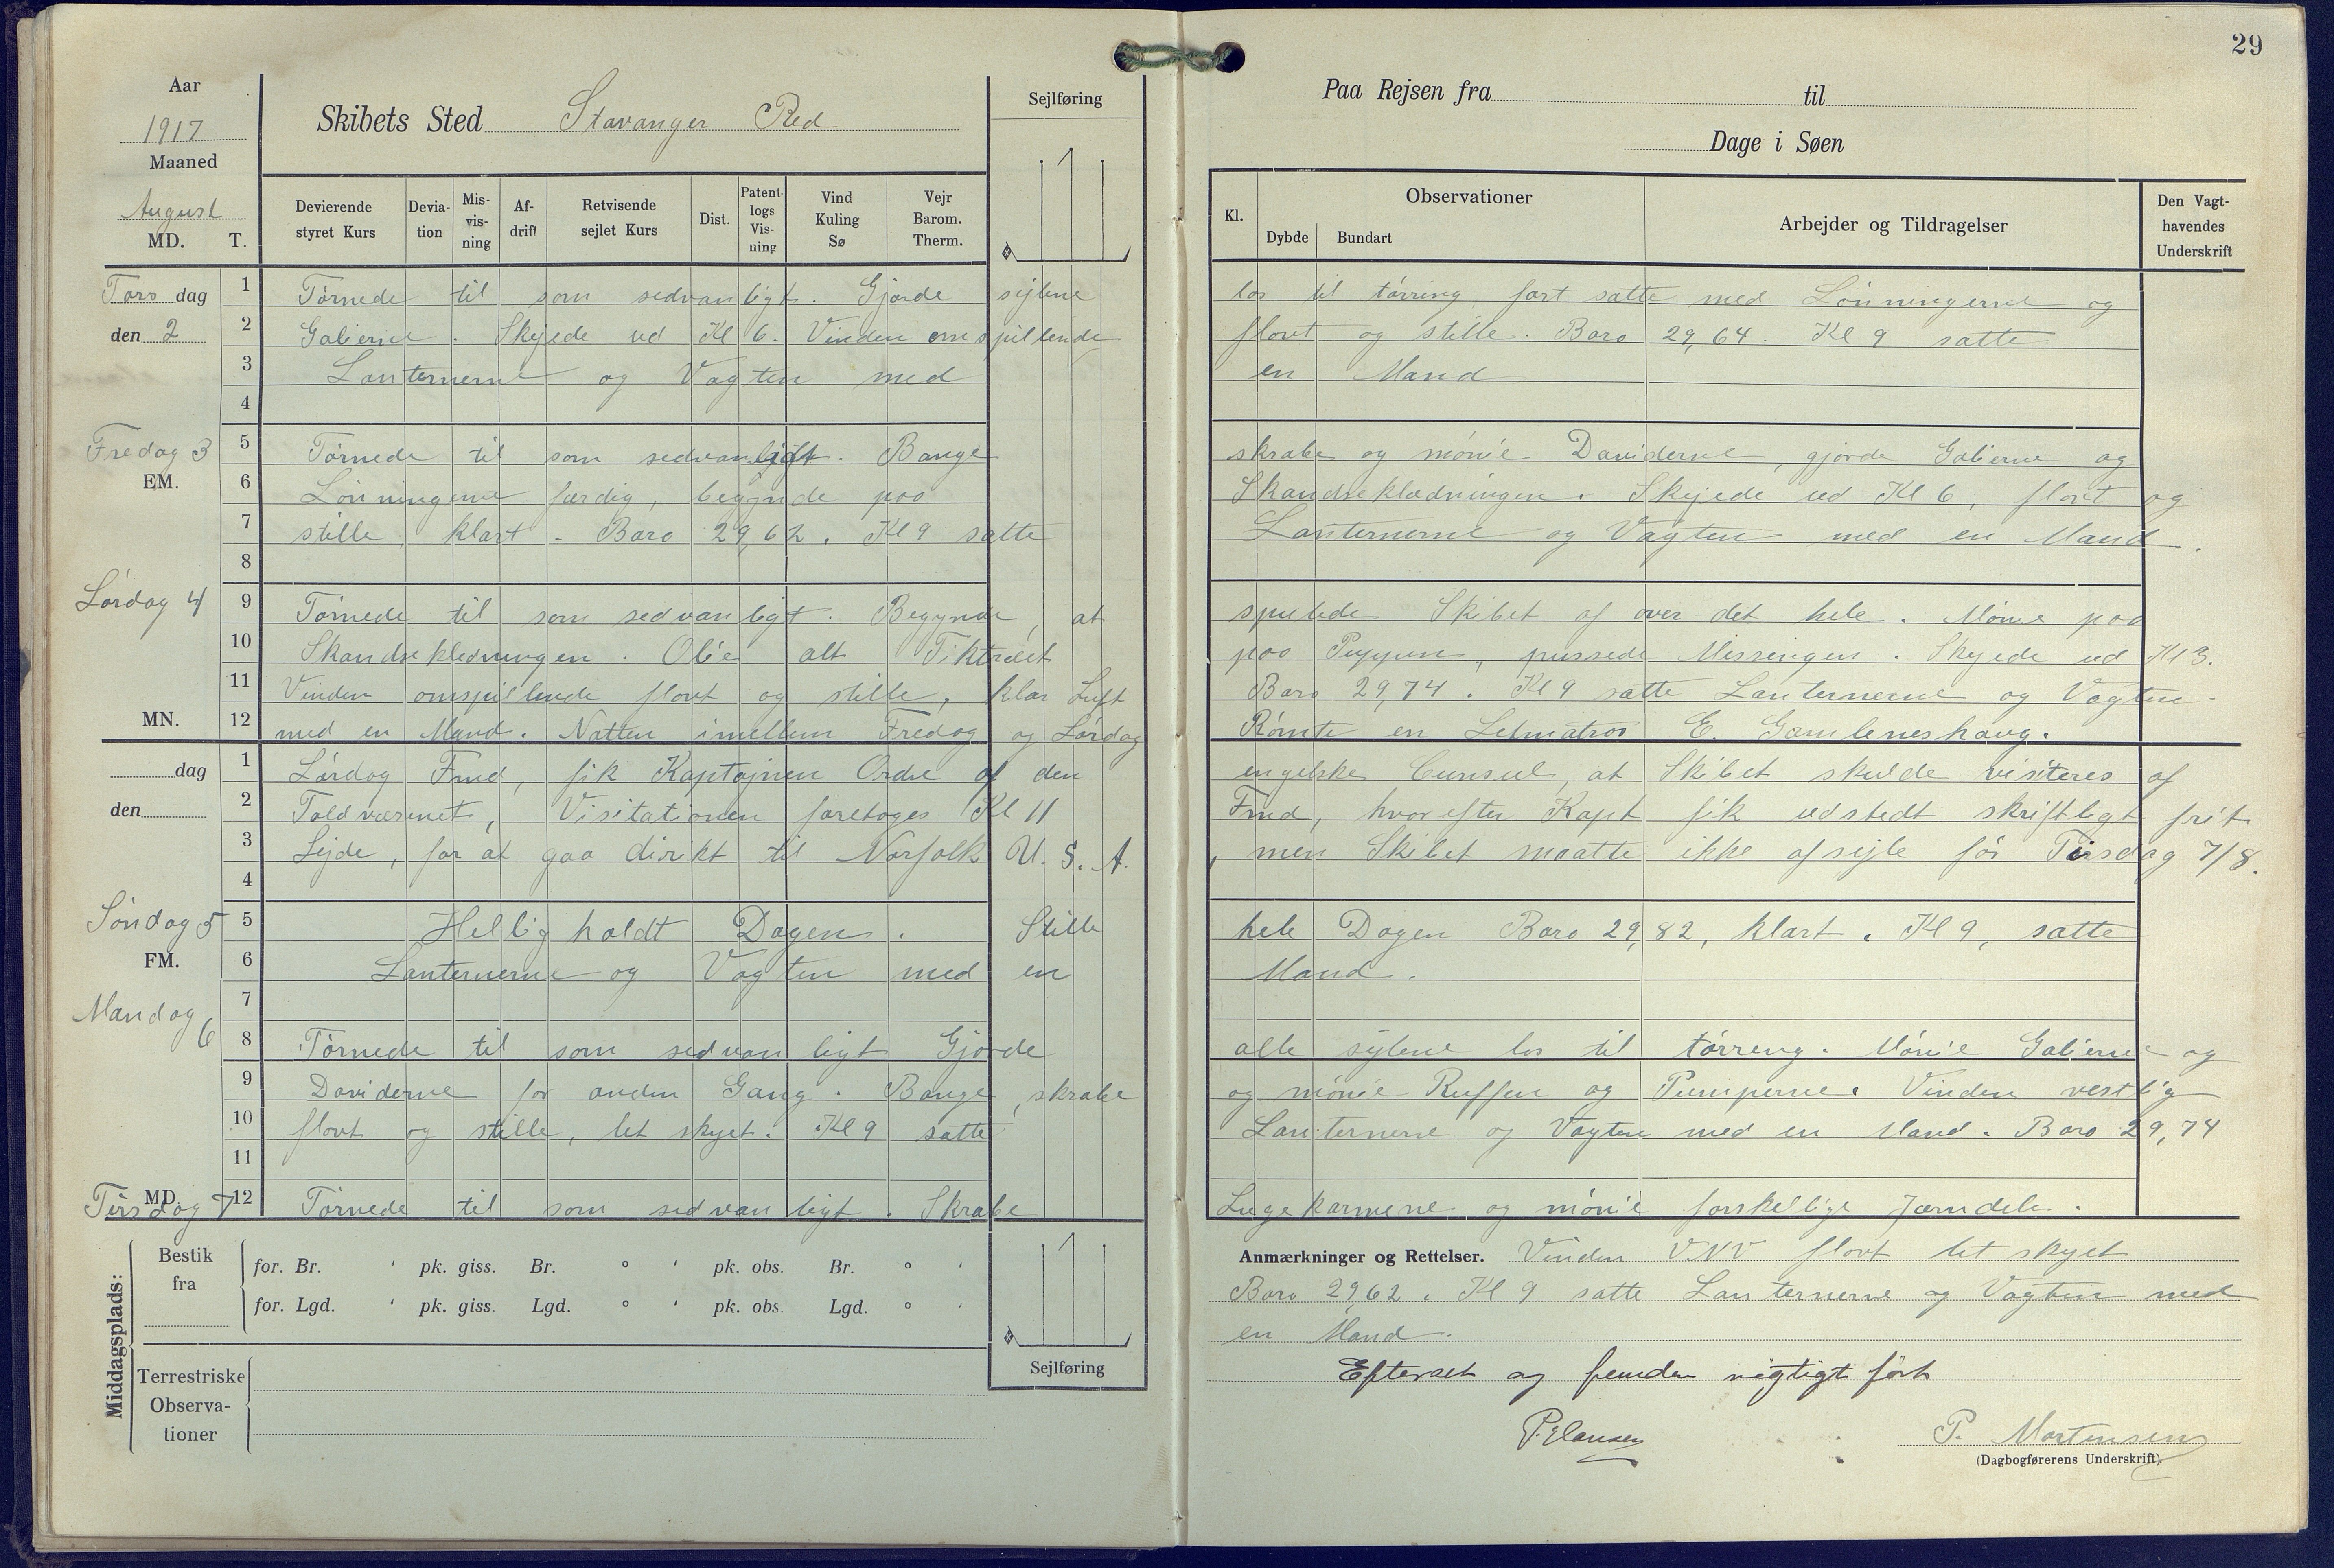 29
Aar
1917
Maaned
August
MD. T.
Skibets Sted Stavanger Red
Sejlføring
Paa Rejsen fra til
Dage i Søen
Devierende styret Kurs
Devia-tion
Mis-vis-ning
Af-drift
Retvisende sejlet Kurs
Dist.
Patent-logs Vis-ning
Vind Kuling Sø
Vejr Barom. Therm.
Kl.
Observationer
Dybde
Bundart
Arbejder og Tildragelser
Den Vagt-havendes Underskrift
Tors dag
den 2
1 Törnede til som sedvanligt. Gjorde sejlene los til törring fort satte med Lönningerne og
2 Galierne. Skejede ud Kl 6. Vinden omspillende flovt og stille. Baro 29,64. Kl 9 satte
3 Lanternerne og Vagten med en Mand
4
Fredag 3
EM.
5 Törnede til som sedvanligt. Bange skrabe og mönie Daviderne, gjorde Galierne og
6 Lönningerne færdig, begynde paa Skandseklædningen. Skejede ud Kl 6, flovt og
7 stille, klart. Baro 29,62. Kl 9 satte Lanternerne og Vagten med en Mand.
8
Lördag 4
9 Törnede til som sedvanligt. Begynde, at spulede Skibet af over det hele. Mönie paa
10 Skandsekledningen. Olie alt Tiktræet paa Puppen, pussede Missingen. Skejede ud Kl 3.
11 Vinden omspillende flovt og stille, klar Luft Baro 29,74. Kl 9 satte Lanternerne og Vagten
MN.
12 med en Mand. Natten imellem Fredag og Lördag Römte en Letmatros E. Gamleneshaug.
dag
den
1 Lördag Fmd, fik Kaptajnen Ordre af den engelske Cunsul, at Skibet skulde visiteres af
2 Toldværenet, Visitationen foretoges Kl 11 Fmd, hvorefter Kapt fik udstedt skriftligt frit
3 Lejde, for at gaa dirkt til Norfolk U. S. A., men Skibet maatte ikke afsejle för Tirsdag 7/8.
4
Söndag 5
FM.
5 Hellig holdt Dagen. Stille hele Dagen Baro 29,82, klart. Kl 9, satte
6 Lanternerne og Vagten med en Mand.
7
Mandag 6
8 Törnede til som sedvanligt Gjorde alle sejlene los til törreng. Mönie Galierne og
9 Daviderne for anden Gang. Bange, skrabe og mönie Ruffen og Pumperne. Vinden vestlig
10 flovt og stille, let skyet. Kl 9 satte Lanternerne og Vagten med en Mand. Baro 29,74
11
MD.
Tirsdag 7
12 Törnede til som sedvanligt. Skrabe Lugekarmene og mönie forskellige Jærndele.
Middagsplads:
Bestik fra
for. Br. ' pk. giss. Br. ° ' pk. obs. Br. ° '
for. Lgd. ' pk. giss. Lgd. ° ' pk. obs. Lgd. ° '
Sejlføring
Terrestriske Observa-tioner
Anmærkninger og Rettelser. Vinden VNV flovt let skyet
Baro 29,62. Kl 9 satte Lanternerne og Vagten med
en Mand.
Efterset og funden rigtigt fört
P. Hansen
P. Mortensen
(Dagbogførerens Underskrift).